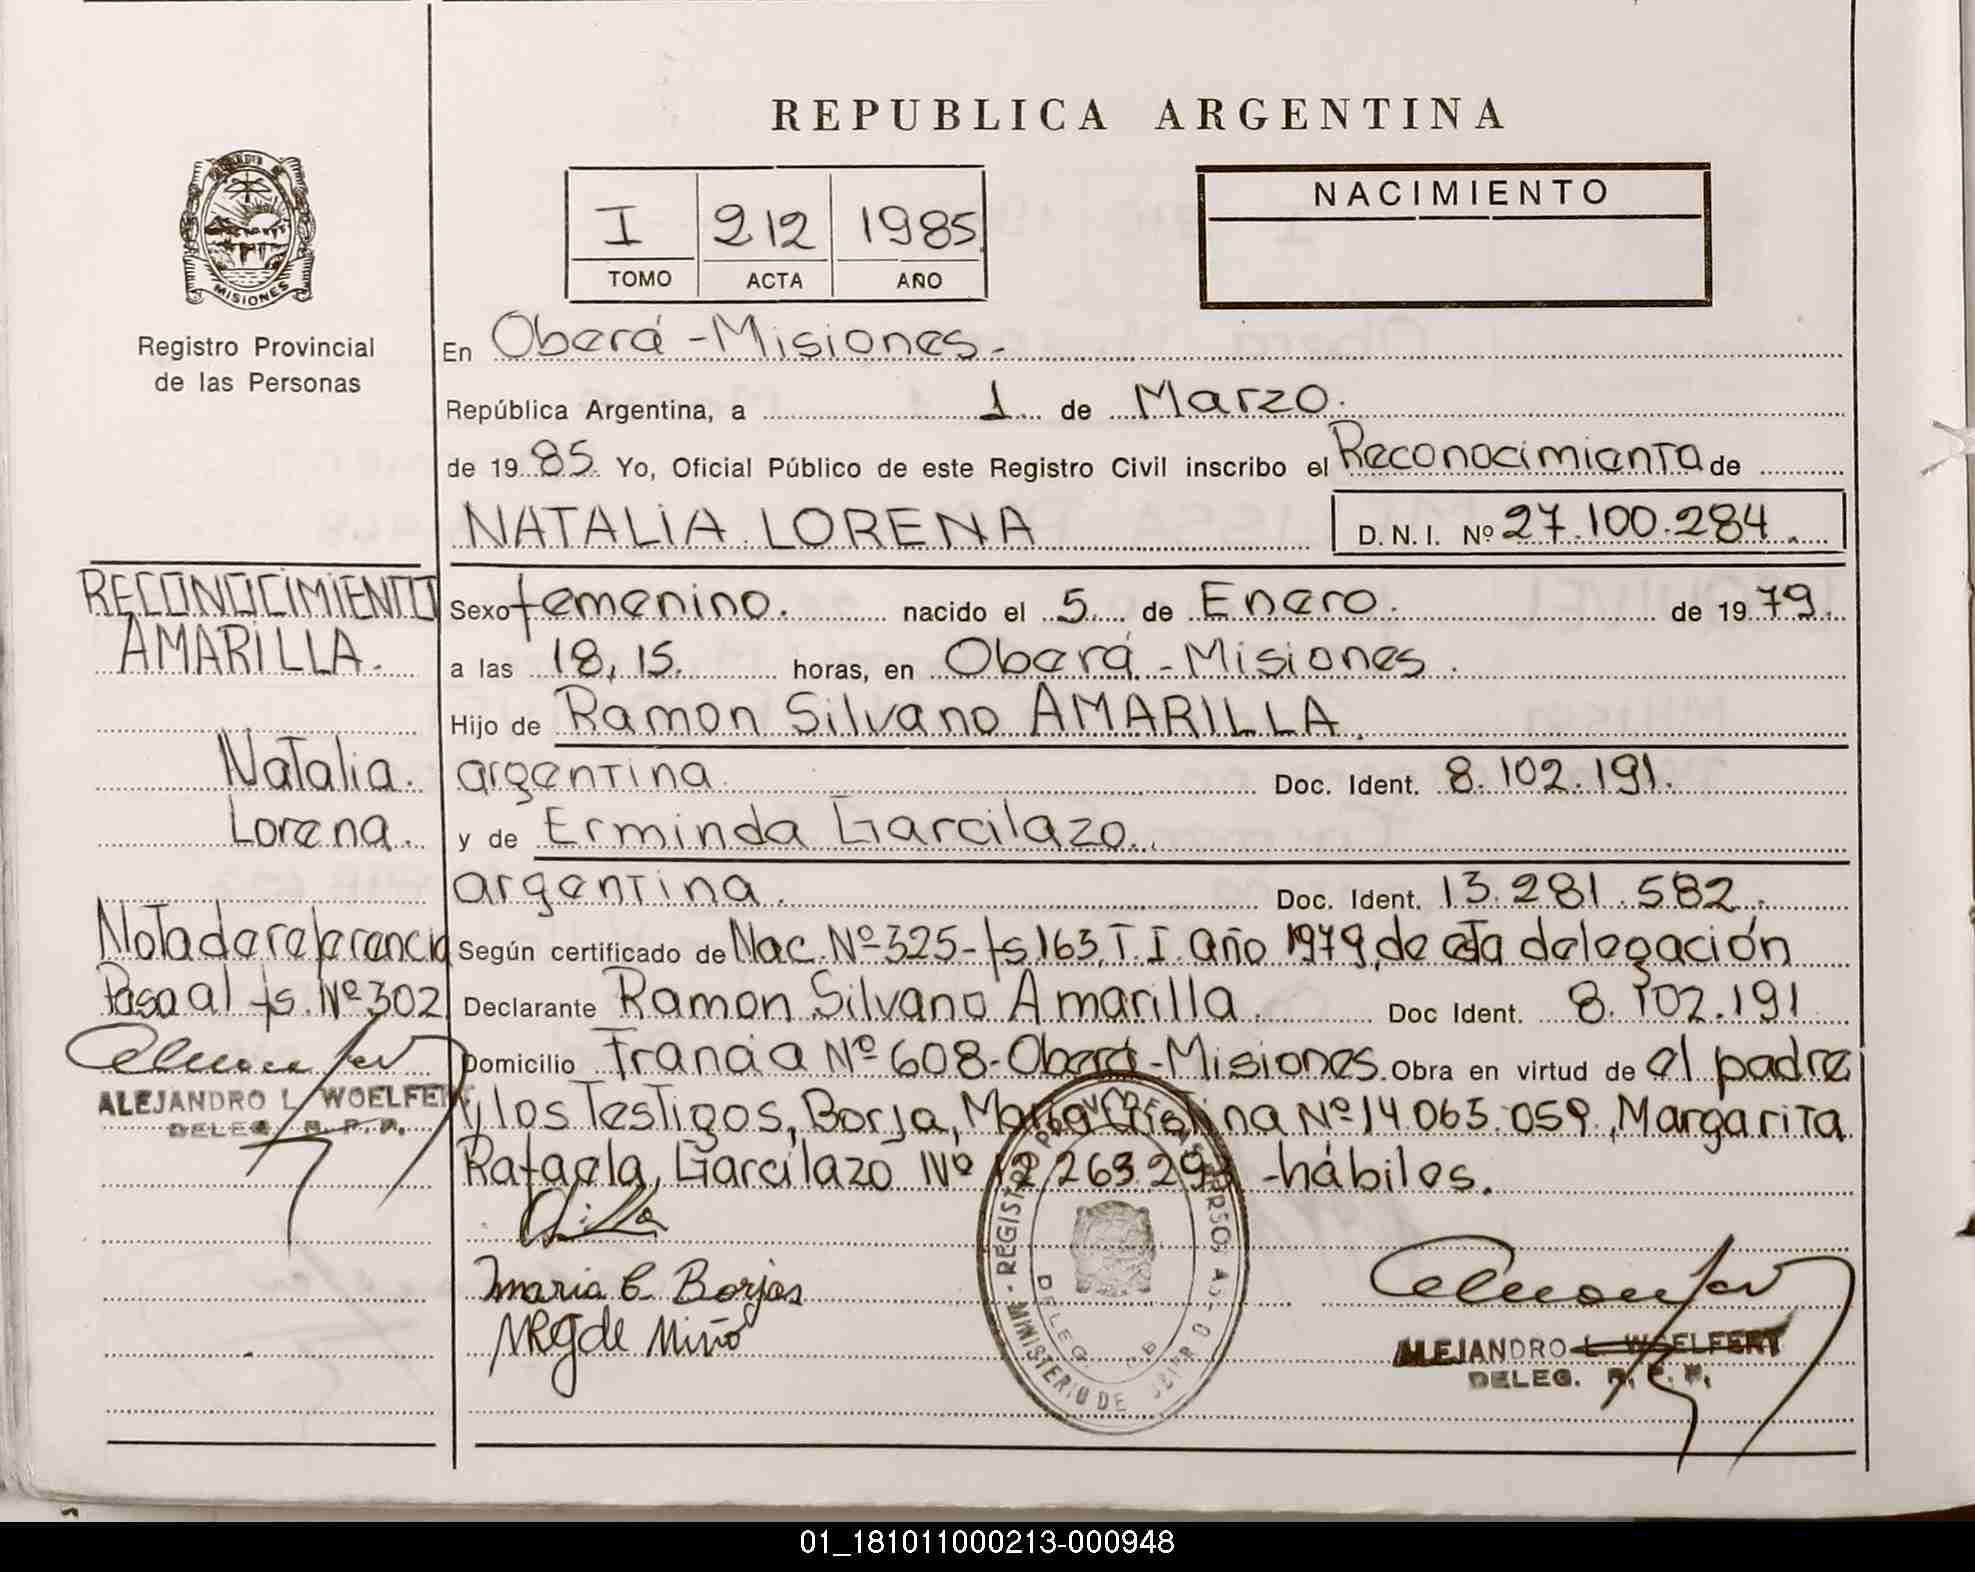 REPUBLICA ARGENTINA
I 212 1985
TOMO ACTA AÑO
NACIMIENTO
MISIONES
Registro Provincial
de las Personas
En Oberá - Misiones.-
República Argentina, a 1 de Marzo.
de 1985. Yo, Oficial Público de este Registro Civil inscribo el Reconocimiento de
NATALIA LORENA D. N. I. Nº 27.100.284.
RECONOCIMIENTO
AMARILLA.
Natalia.
Lorena.
Nota de referencia
Pasa al fs. Nº 302
ALEJANDRO L. WOELFERT
DELEG. R. P. P.
Sexo femenino. nacido el 5 de Enero. de 1979.
a las 18,15. horas, en Oberá - Misiones.
Hijo de Ramon Silvano AMARILLA.
argentina. Doc. Ident. 8.102.191.
y de Erminda Garcilazo.
argentina. Doc. Ident. 13.281.582.
Según certificado de Nac. Nº 325- fs 163, T. I. año 1979, de esta delegación
Declarante Ramon Silvano Amarilla. Doc Ident. 8.102.191
Domicilio Francia Nº 608- Oberá - Misiones. Obra en virtud de el padre
y los Testigos, Borja, Maria Cristina Nº 14.065.059, Margarita
Rafaela, Garcilazo Nº 12 263.293 -hábiles.
Maria C. Borjas
MRG de Miño
REGISTRO PROV. DE LAS PERSONAS
MINISTERIO DE
DELEG.
ALEJANDRO L. WOELFERT
DELEG. R. P. P.
01_181011000213-000948